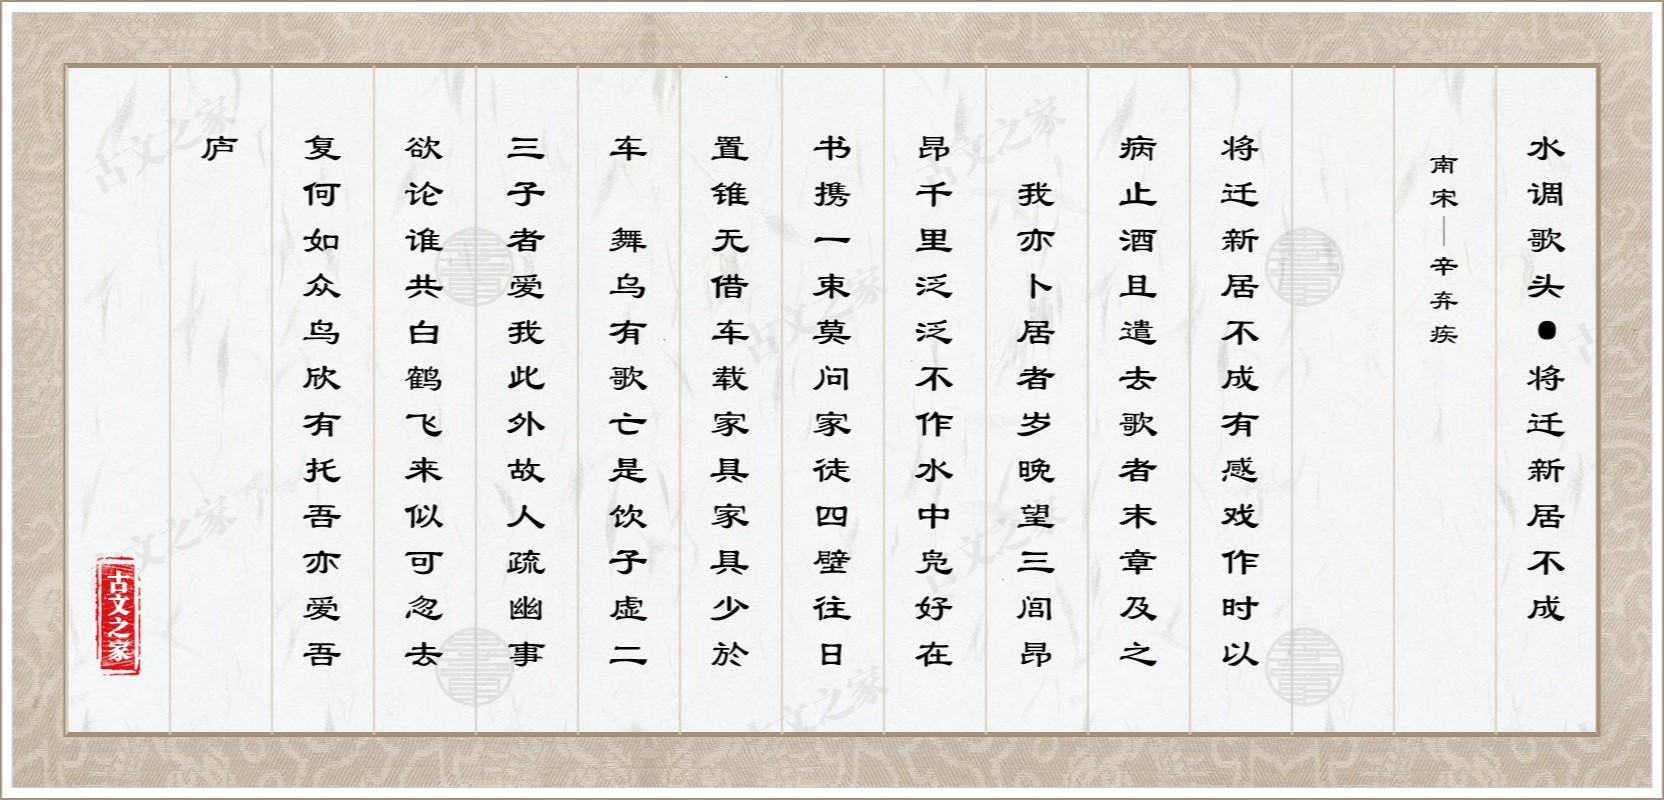 水调歌头●将迁新居不成
南宋—辛弃疾
将迁新居不成有感戏作时以
病止酒且遣去歌者末章及之
我亦卜居者岁晚望三闾昂
昂千里泛泛不作水中凫好在
书携一束莫问家徒四壁往日
置锥无借车载家具家具少於
车　舞乌有歌亡是饮子虚二
三子者爱我此外故人疏幽事
欲论谁共白鹤飞来似可忽去
复何如众鸟欣有托吾亦爱吾
庐
古文之家